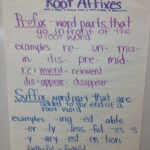 Root Affixes
Prefix - word parts that
go in front of the
root word
examples: re- un- mis-
in- dis- pre- mid-
re + invent = reinvent
dis + appear = disappear
Suffix - word parts that are
added to the end of a
root word
examples: -ing -ed -able
-er -ly -less -ful -es -s
-y -ary -est -en -tion